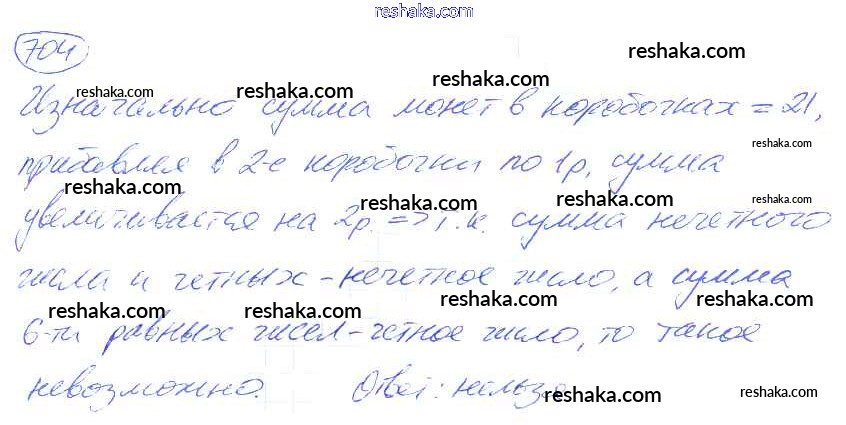 reshaka.com
704
reshaka.com
reshaka.com reshaka.com
Изначально сумма монет в коробочках = 21,
reshaka.com
прибавляя в 2-е коробочки по 1р, сумма
reshaka.com reshaka.com reshaka.com
увеличивается на 2р. => т.к. сумма нечетного
reshaka.com
числа и четных - нечетное число, а сумма
reshaka.com reshaka.com reshaka.com
6-ти равных чисел - четное число, то такое
reshaka.com reshaka.com
невозможно. Ответ: нельзя
reshaka.com reshaka.com